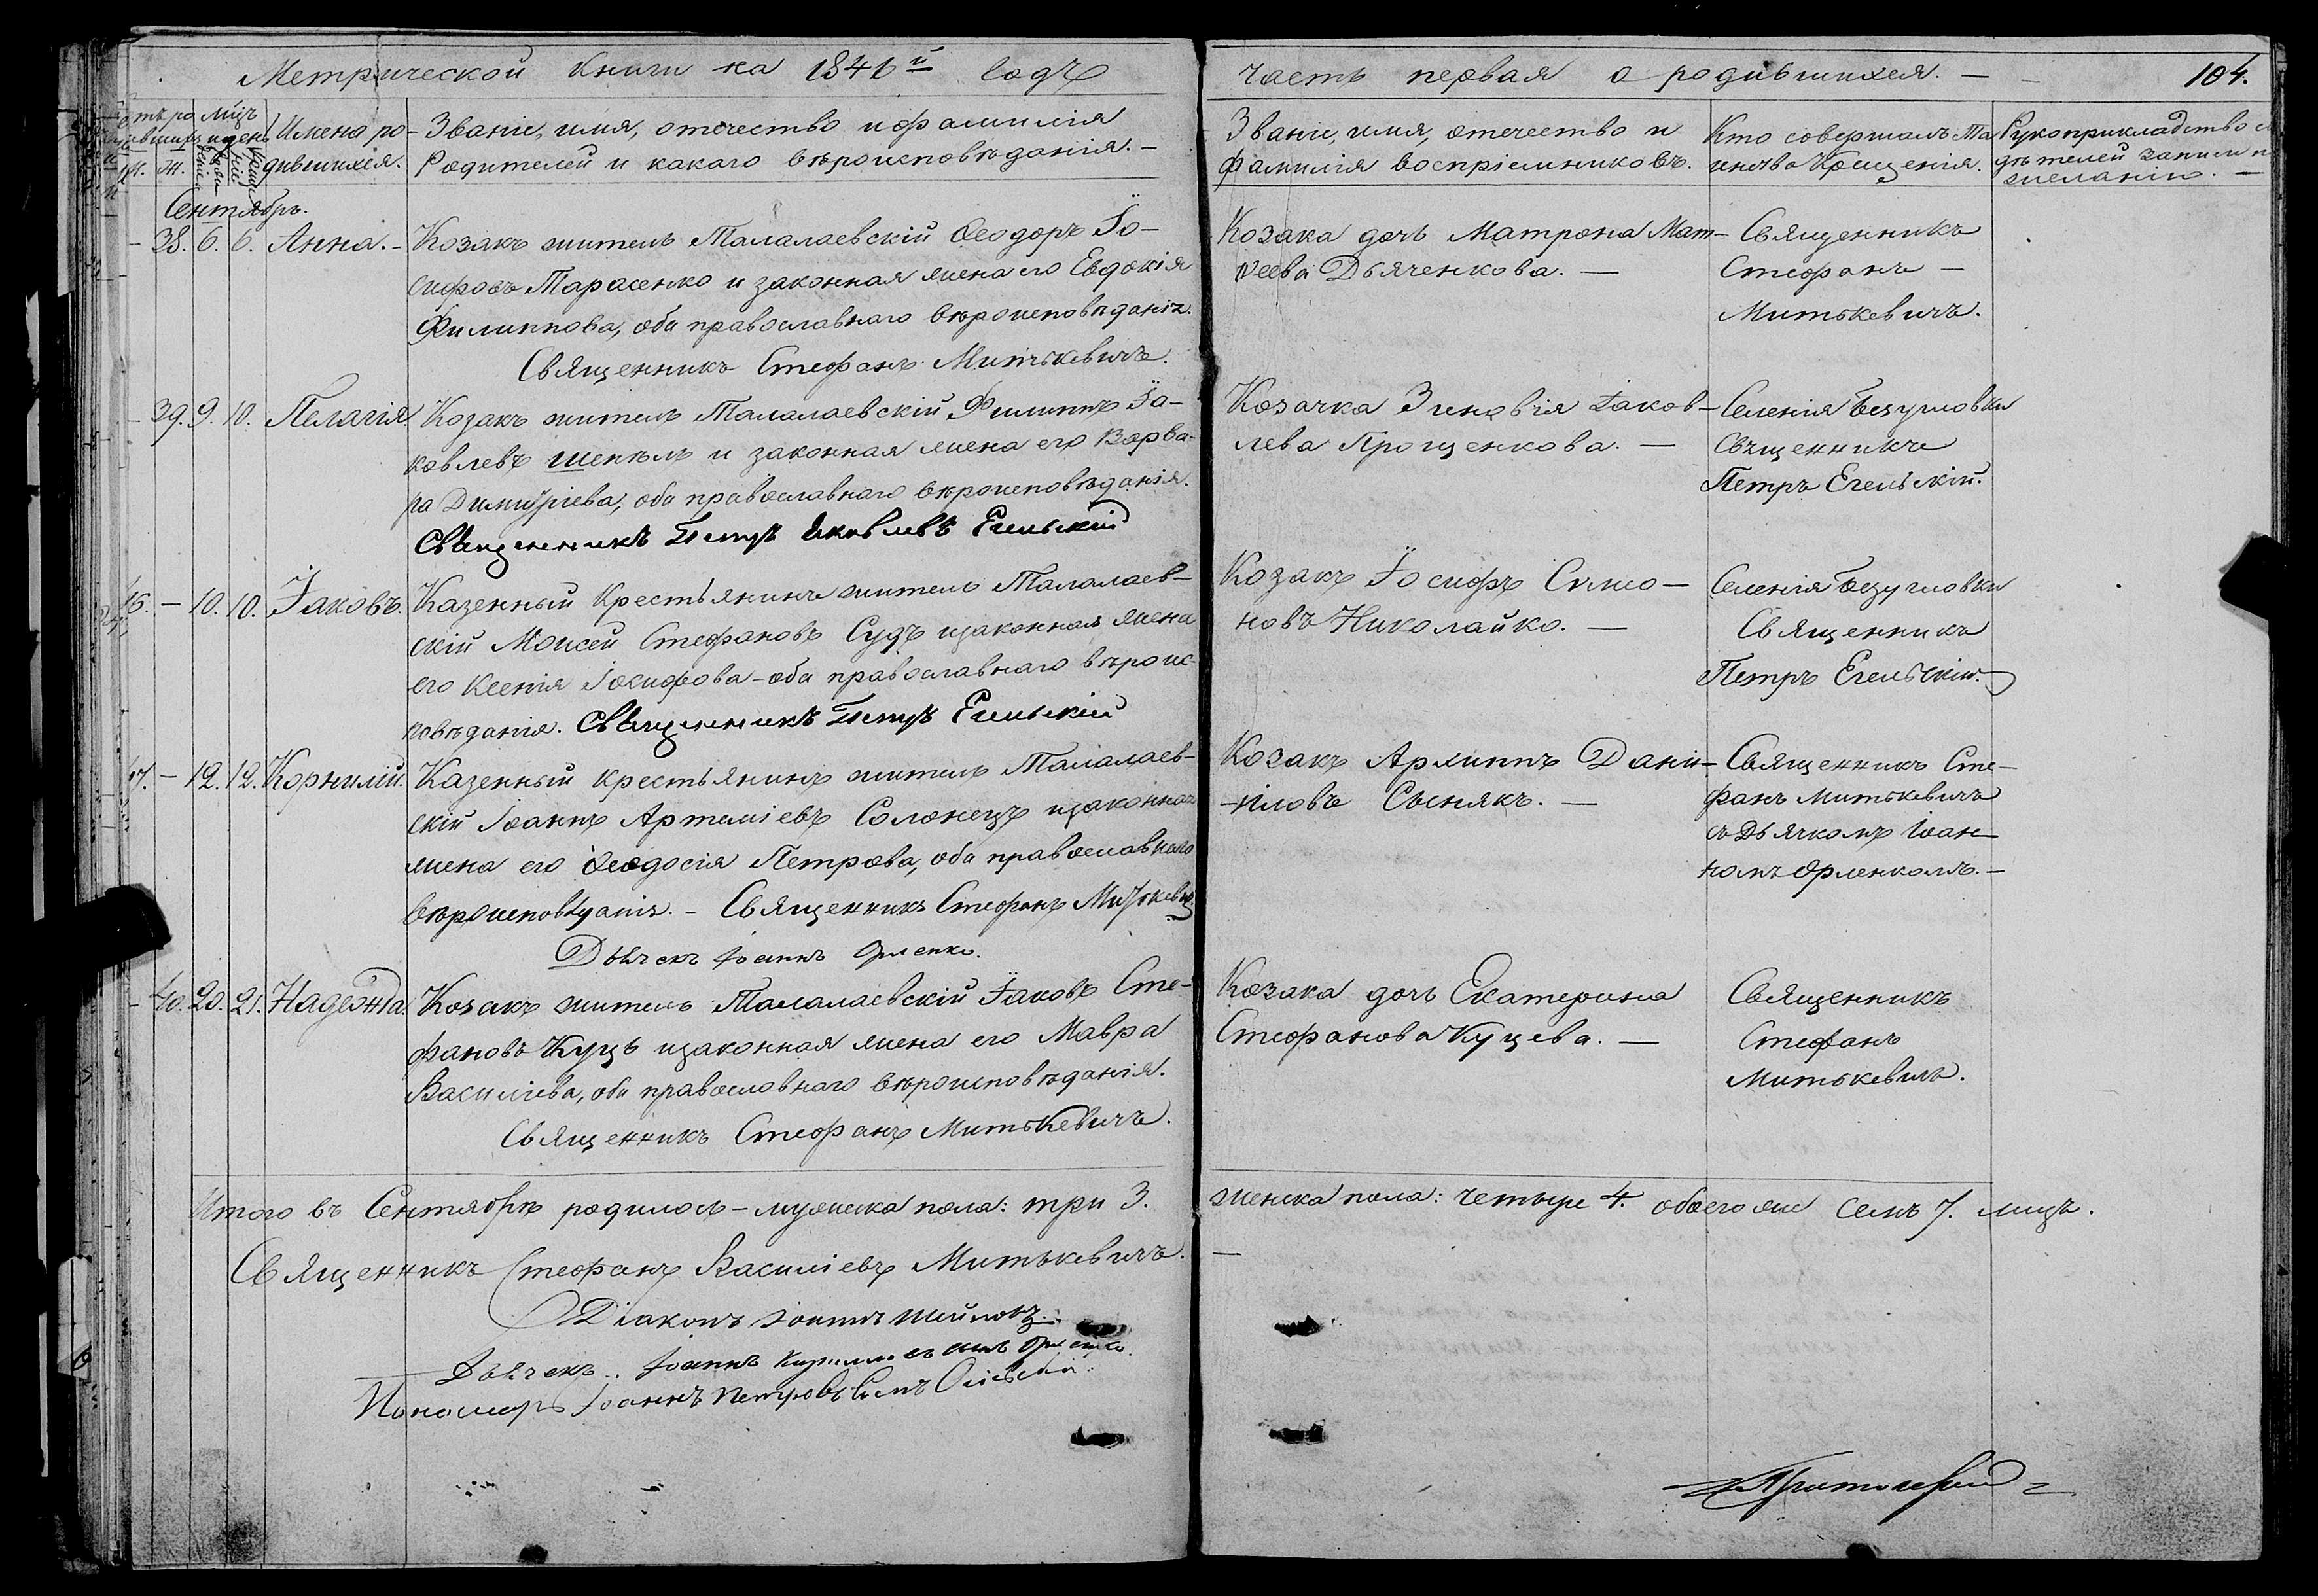 Метрической книги на 1841й годъ
часть первая о родившихся. —
104.
Имена ро-
дившихся.
Званіе, имя, отечество и фамилія
Родителей и какаго вѣроисповѣданія. —
Званіе, имя, отечество и
фамилія воспріемниковъ.
Кто совершалъ Та
инство Крещенія.
Рукоприкладство
дѣтелей записи п
желанію. —
м. ж.
Сентябрь.
— 38. 6. 6. Анна. —
Козакъ житель Талалаевскій Ѳеодоръ Іо-
сифовъ Тарасенко и законная жена его Евдокія
Филиппова, оба православнаго вѣроисповѣданія.
Священникъ Стефанъ Митькевичъ.
Козака дочь Матрона Мат-
ѳеева Дьяченкова. —
Священникъ
Стефанъ —
Митькевичъ.
— 39. 9. 10. Пелагія
Козакъ житель Талалаевскій Филиппъ Іа-
ковлевъ Шепель и законная жена его Варва-
ра Димитріева, оба православнаго вѣроисповѣданія.
Священникъ Петръ Яковлевъ Егельскій
Козачка Зиновія Іаков-
лева Прощенкова. —
Селенія Безугловки
Священникъ
Петръ Егельскій.
16. — 10. 10. Іаковъ.
Казенный Крестьянинъ житель Талалаев-
скій Моисей Стефановъ Судъ изаконная жена
его Ксенія Іосифова — оба православнаго вѣроис-
повѣданія. Священникъ Петръ Егельскій
Козакъ Іосифъ Симо-
новъ Николайко. —
Селенія Безугловки
Священникъ
Петръ Егельскій.
17. — 12. 12. Корнилій.
Казенный крестьянинъ житель Талалаев-
скій Іоаннъ Артеміевъ Солонецъ изаконная
жена его Ѳеодосія Петрова, оба православнаго
вѣроисповѣданія. — Священникъ Стефанъ Митькевич
Дьячекъ Іоаннъ Орленко.
Козакъ Архиппъ Дани-
иловъ Сыснякъ. —
Священникъ Сте-
фанъ Митькевичъ
съ Дьячкомъ Іоан-
номъ Орленкомъ. —
— 40. 20. 21. Надежда.
Козакъ житель Талалаевскій Іаковъ Сте-
фановъ Куцъ изаконная жена его Мавра
Василіева, оба православнаго вѣроисповѣданія.
Священникъ Стефанъ Митькевичъ.
Козака дочь Екатерина
Стефанова Куцева. —
Священникъ
Стефанъ
Митькевичъ.
Итого въ Сентябрѣ родилось — мужеска пола: три 3.
женска пола: четыре 4. обоего же семъ 7. лицъ.
Священникъ Стефанъ Василіевъ Митькевичъ. —
Діаконъ Іоаннъ
Дьячекъ Іоаннъ Кирилловъ сынъ Орленко.
Пономарь Іоаннъ Петровъ Сынъ